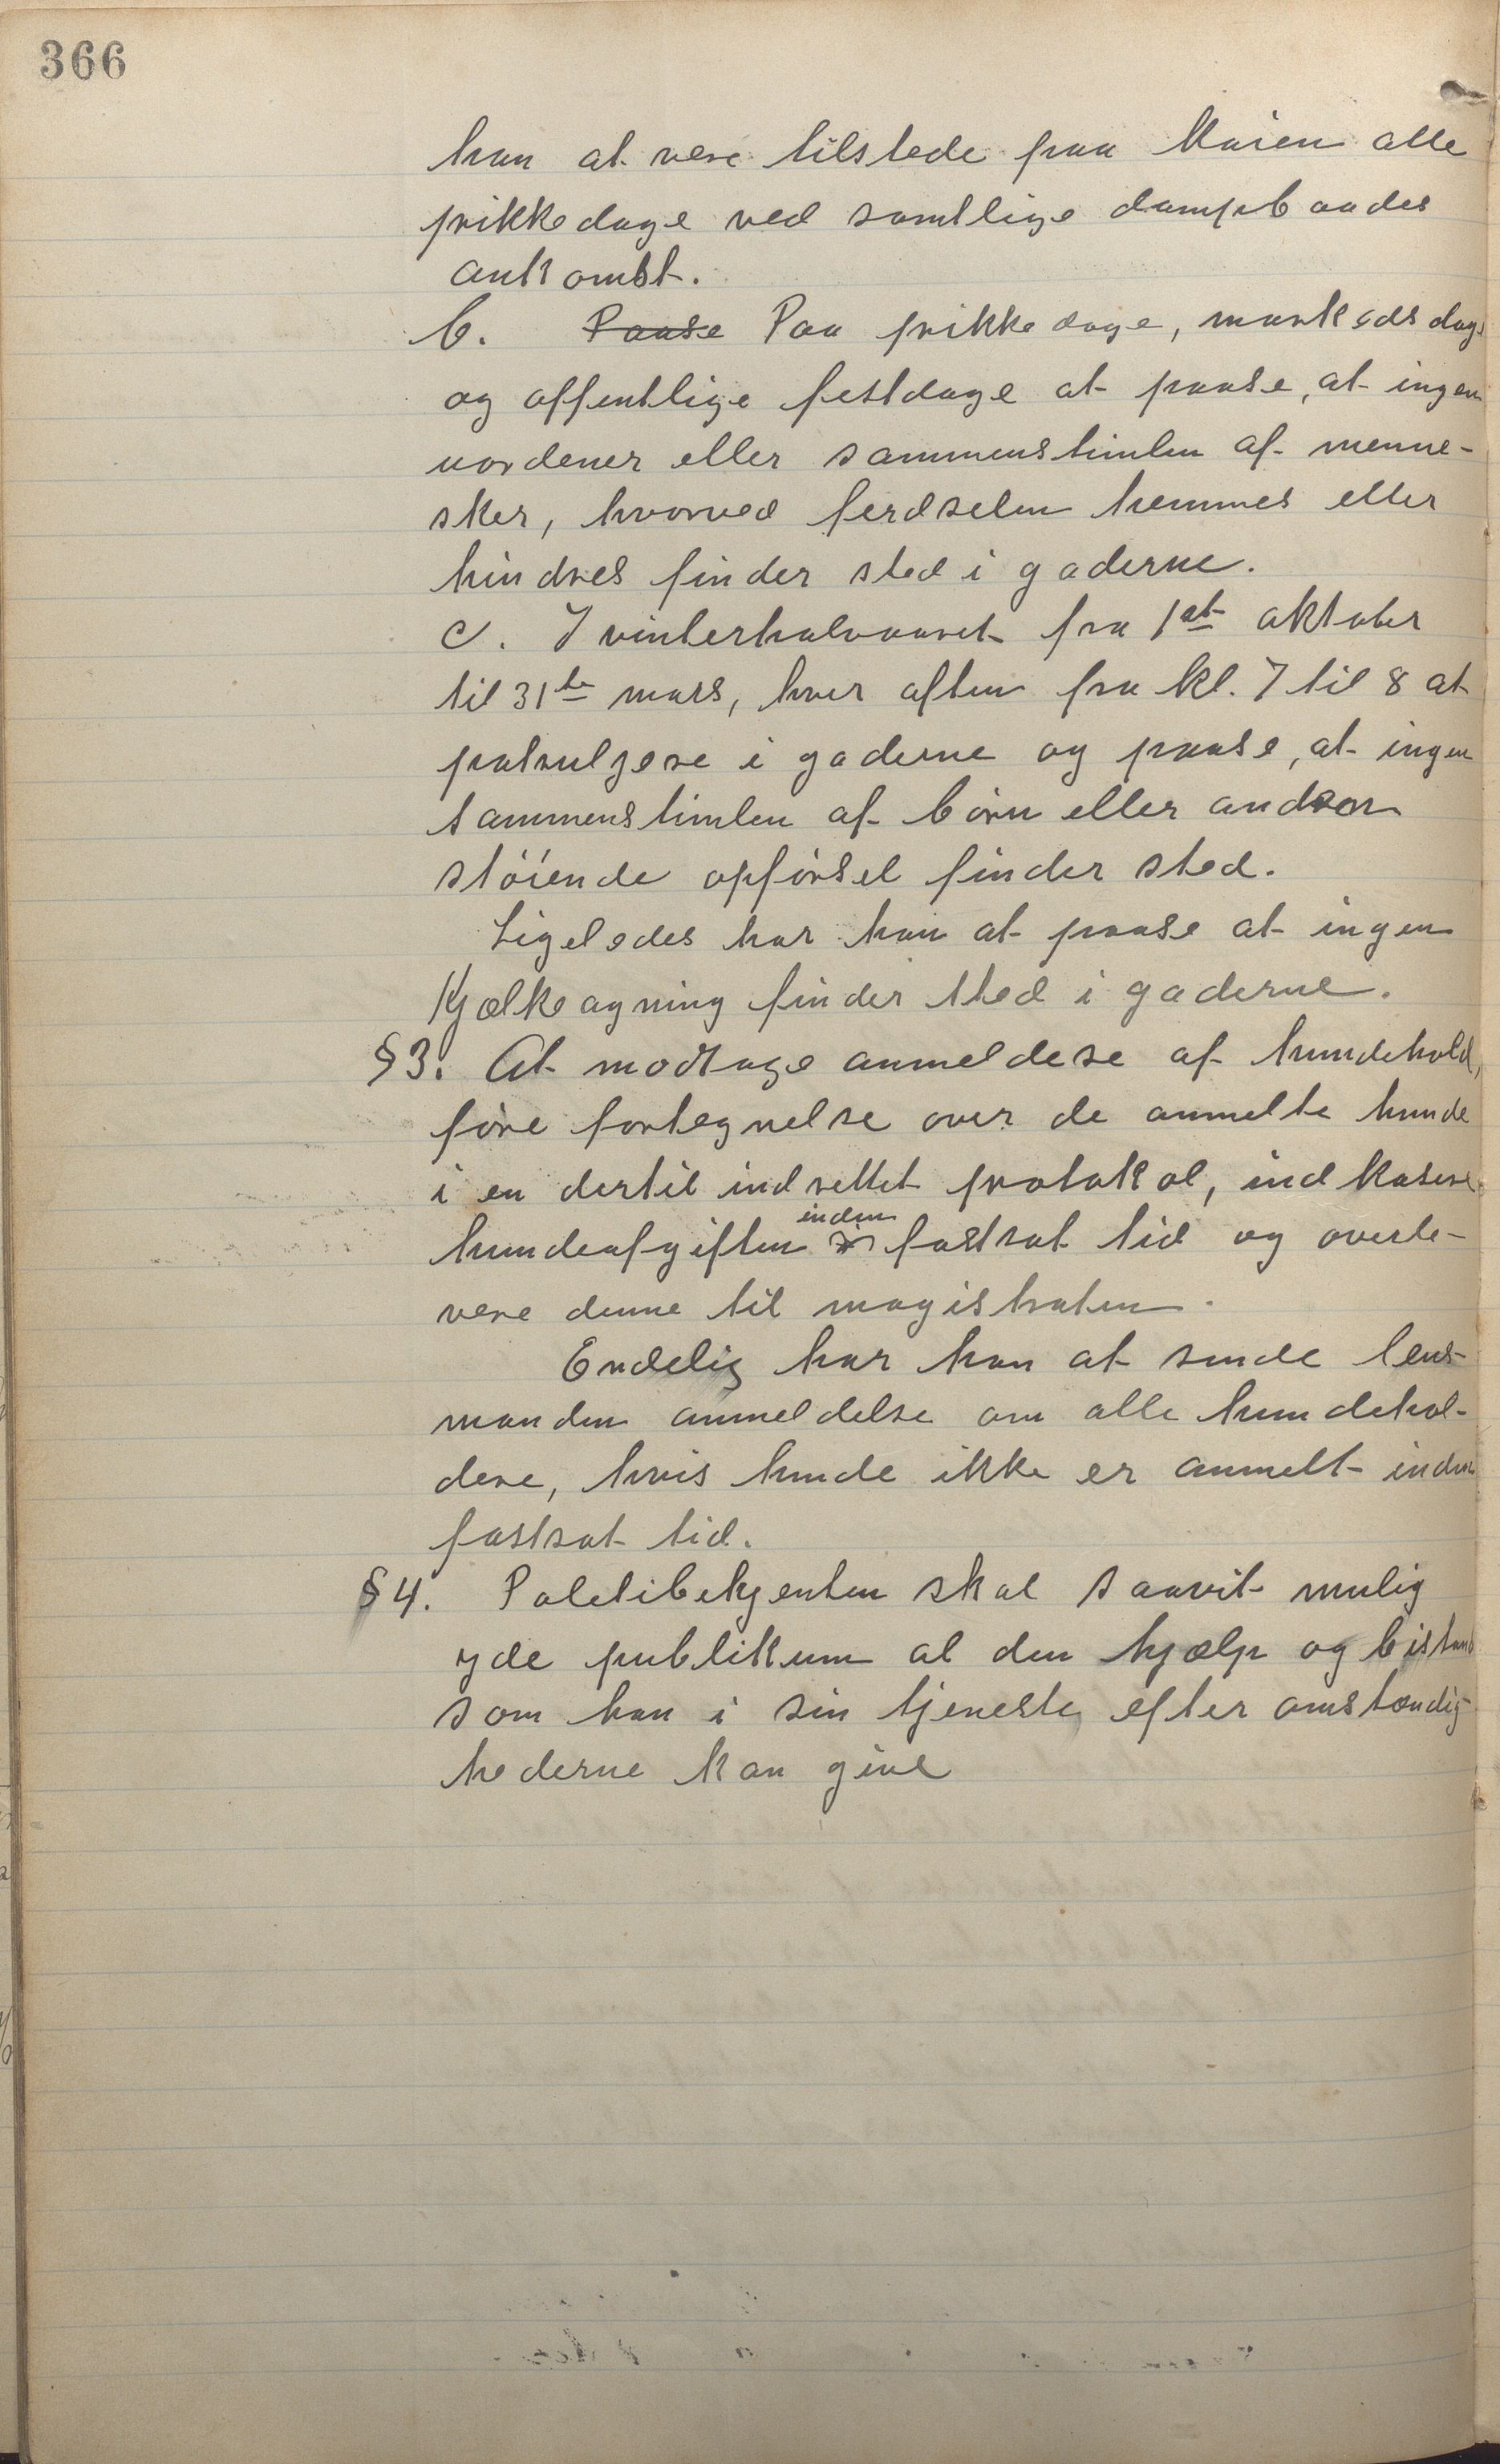 366
han at være tilstede paa Kaien alle
prikkedage ved samtlige dampbaades
ankomst.
b. Paase Paa prikkedage, markedsdage
og offentlige festdage at paase, at ingen
uordener eller sammenstimlen af menne-
sker, hvorved ferdselen hemmes eller
hindres finder sted i gaderne.
c. I vinterhalvaaret fra 1st oktober
til 31te mars, hver aften fra kl. 7 til 8 at
patruljere i gaderne og paase, at ingen
sammenstimlen af börn eller anden
stöiende opförsel finder sted.
Ligeledes har han at paase at ingen
Kjælkeagning finder sted i gaderne.
§3. At modtage anmeldese af hundehold,
före fortegnelse over de anmelte hunde
i en dertil indrettet protokol, indkasere
inden
hundeafgiften i fastsat tid og overle-
vere denne til magistraten.
Endelig har han at sende lens-
manden anmeldelse om alle hundehol-
dere, hvis hunde ikke er anmelt inden
fastsat tid.
§4. Politibetjenten skal saavit mulig
yde publikum al den hjælp og bistand
som han i sin tjeneste efter omstændig-
hederne kan give